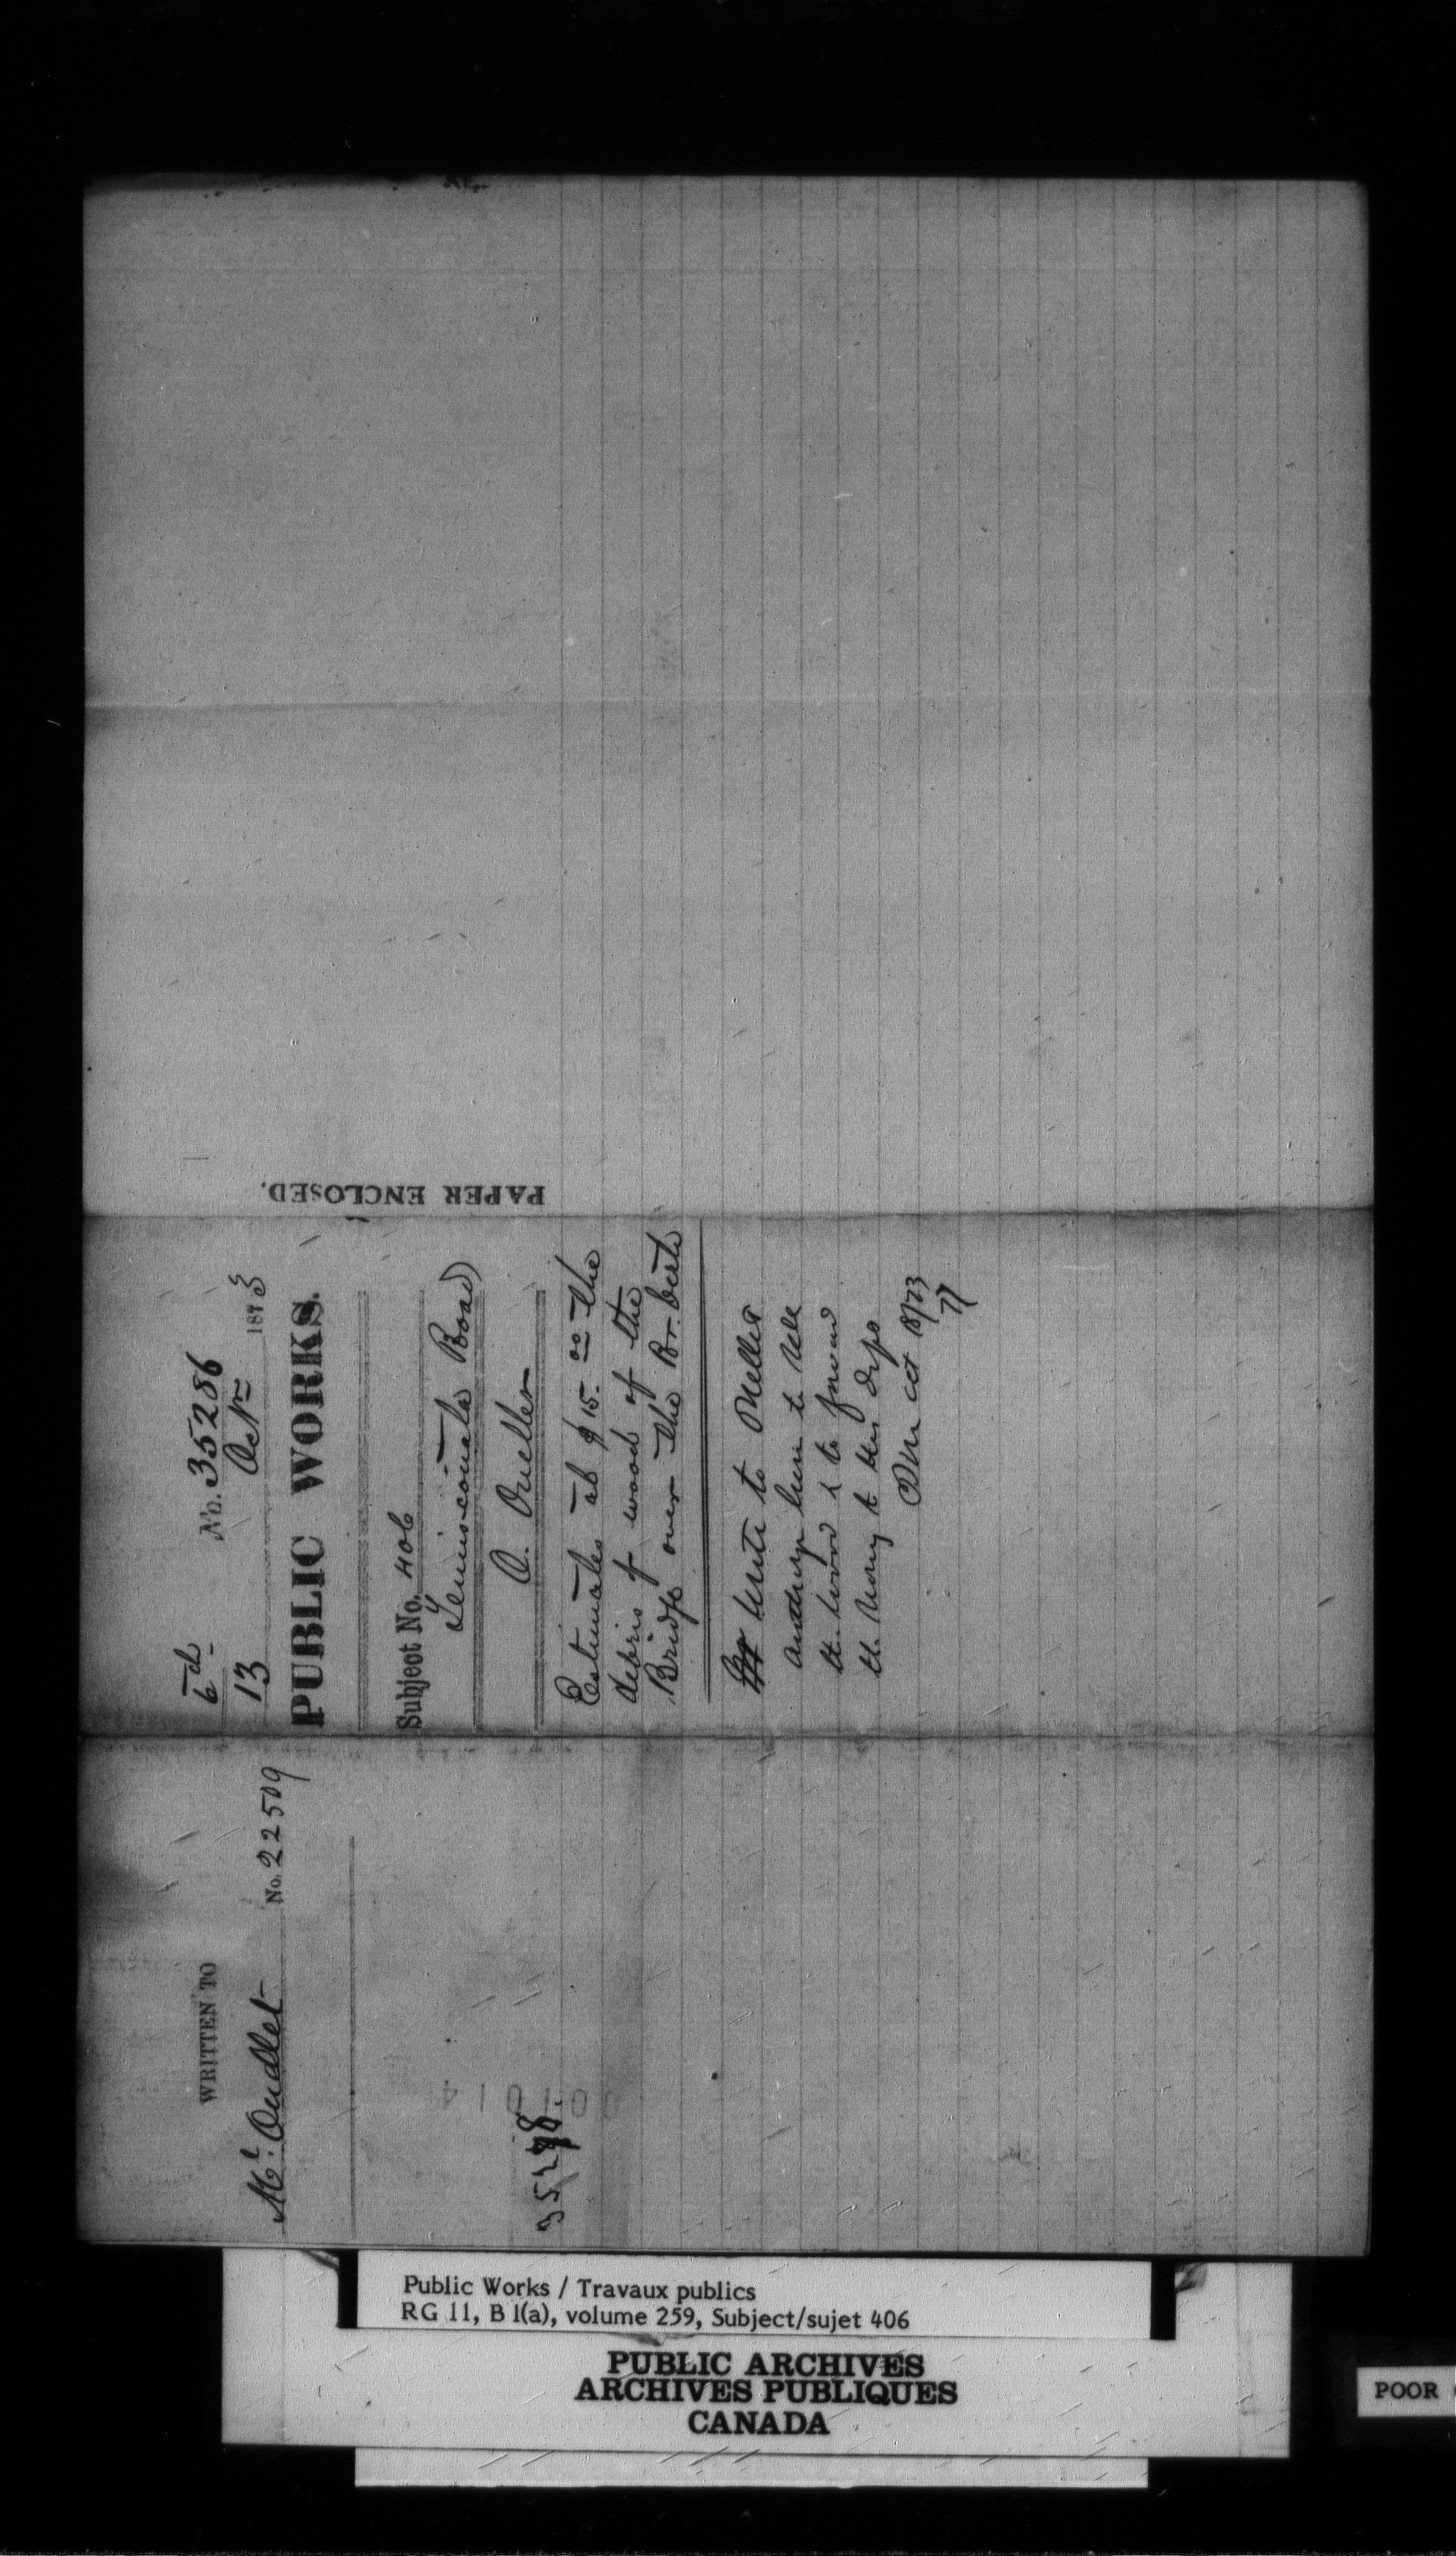 6th No. 35286
13 Octr 1873
PUBLIC WORKS.
Subject No. 406
Temiscouata Road
O. Ouellet
Estimates at $15.00 the
debris of wood of the
Bridge over the Br.
Write to Ouellet
authorize him to sell
the wood & to forward
the money to this Dept
Oct 18/73
PAPER ENCLOSED.
WRITTEN TO
Mr. Ouellet No. 22509
Public Works / Travaux publics
RG 11, B 1(a), volume 259, Subject/sujet 406
PUBLIC ARCHIVES
ARCHIVES PUBLIQUES
CANADA
POOR